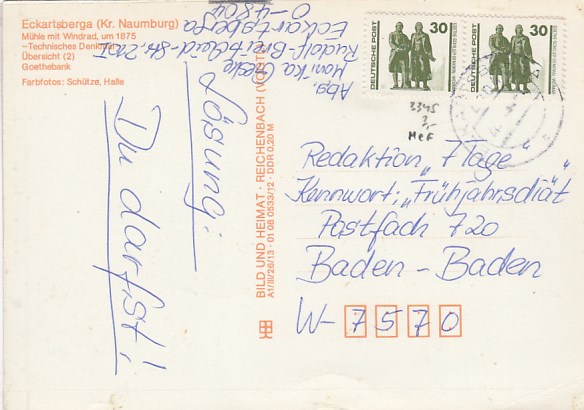 Eckartsberga (Kr. Naumburg)
Mühle mit Windrad, um 1875
—Technisches Denkmal
Übersicht (2)
Goethebank
Farbfotos: Schütze, Halle
Abg.
Monika
Rudolf-Breitscheid-Str.
Eckartsberga
O-4804
Lösung:
Du darfst!
BILD UND HEIMAT · REICHENBACH (VOGTL)
A1/III/26/13 · 01 08 0533/12 · DDR 0,20 M
DEUTSCHE POST
30
DEUTSCHE POST
30
3345
MeF
Redaktion „7 Tage"
Kennwort: „Frühjahrsdiät"
Postfach 720
Baden-Baden
W-7570